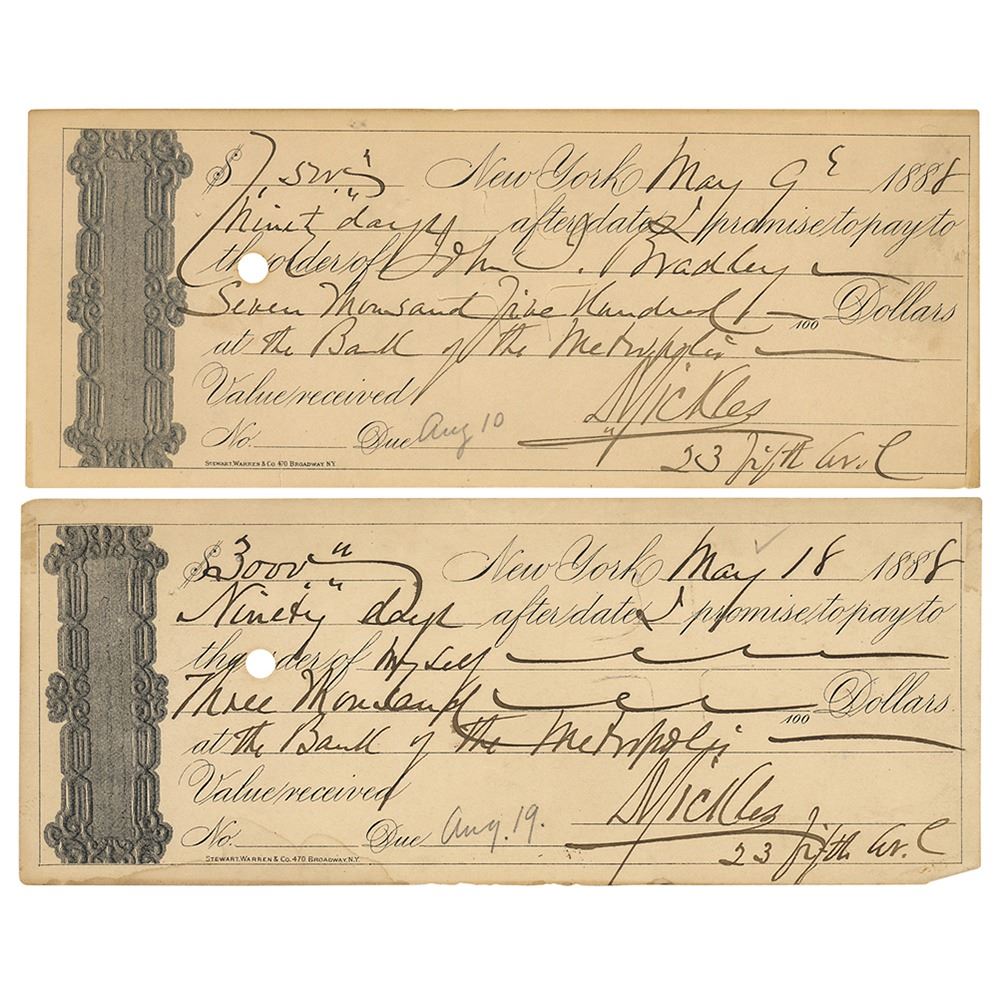 $7,500 New York May 9 1888
Ninet days after date I promise to pay to
the order of John J. Bradley
Seven Thousand Five Hundred /100 Dollars
at the Bank of the Metropolis
Value received
DSickles
No. Due Aug 10
23 Fifth Av.
STEWART, WARREN & CO. 470 BROADWAY N.Y.
$3000 New York May 18 1888
Ninety days after date I promise to pay to
the order of Myself
Three Thousand /100 Dollars
at the Bank of the Metropolis
Value received
DSickles
No. Due Aug. 19.
23 Fifth Av.
STEWART, WARREN & CO. 470 BROADWAY, N.Y.